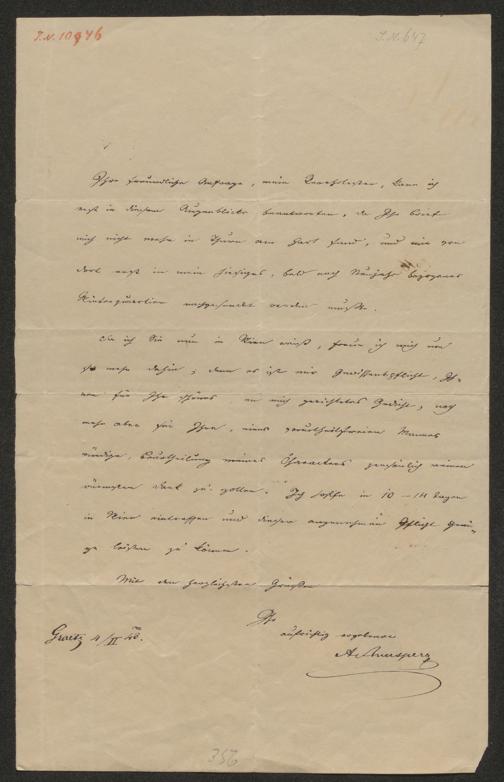 I.N. 10946
I.N. 647
Ihre freundliche Anfrage, mein Verehrtester, kann ich
erst in diesem Augenblicke beantworten, da Ihr Brief
mich nicht mehr in Thurn am Hart fand, und mir von
dort erst in mein hiesiges, bald nach Neujahr bezogenes
Winterquartier nachgesendet werden mußte.
Da ich Sie nun in Wien weiß, freue ich mich um
so mehr dahin, denn es ist mir Gewissenspflicht, Ih-
nen für Ihr schönes, an mich gerichtetes Gedicht, noch
mehr aber für Ihre, eines vorurtheilsfreien Mannes
würdige, Beurtheilung meines Charakters persönlich meinen
wärmsten Dank zu zollen. Ich hoffe in 10–14 Tagen
in Wien eintreffen und dieser angenehmen Pflicht Genü-
ge leisten zu können.
Mit den herzlichsten Grüßen
Ihr
aufrichtig ergebener
A. Auersperg
Graetz 4/II 46.
352